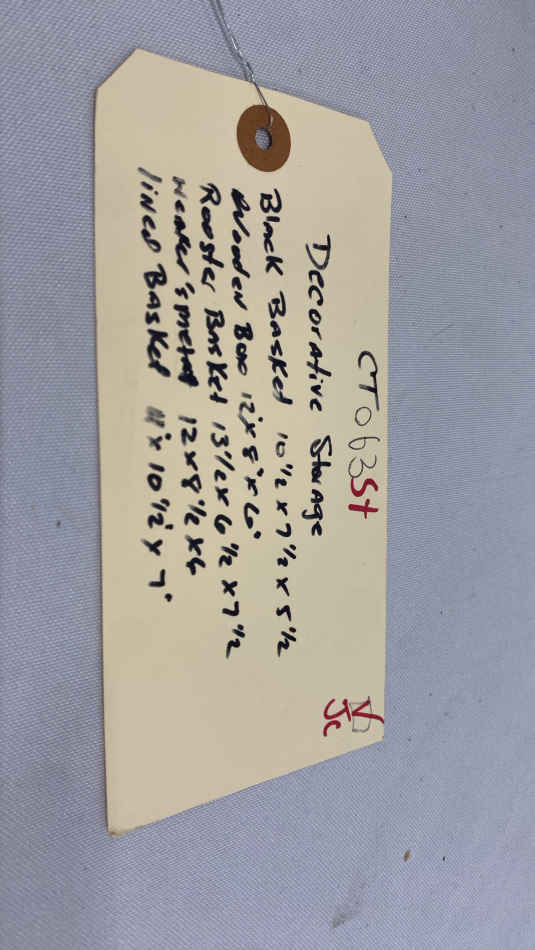 CT063St
Decorative Storage
Black Basket 10 1/2 x 7 1/2 x 5 1/2
Wooden Box 12" x 8" x 6"
Rooster Basket 13 1/2 x 6 1/2 x 7 1/2
metal 12 x 8 1/2 x 6
lined Basket 11" x 10 1/2" x 7"
JC